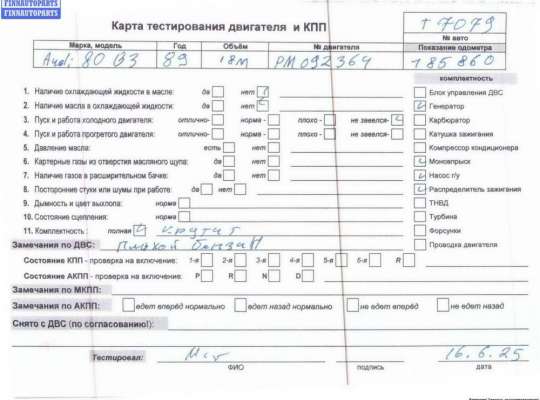 FINNAUTOPARTS
FINNAUTOPARTS
Карта тестирования двигателя и КПП
Т 7079
№ авто
Марка, модель Год Объём № двигателя Показание одометра
Audi 80 B3 89 1.8М PM 092364 185860
комплектность
1. Наличие охлаждающей жидкости в масле: да нет Блок управления ДВС
2. Наличие масла в охлаждающей жидкости: да нет Генератор
3. Пуск и работа холодного двигателя: отлично- норма - плохо - не завелся- Карбюратор
4. Пуск и работа прогретого двигателя: отлично- норма - плохо - не завелся- Катушка зажигания
5. Давление масла: есть нет Компрессор кондиционера
6. Картерные газы из отверстия масляного щупа: да нет Моновпрыск
7. Наличие газов в расширительном бачке: да нет Насос г/у
8. Посторонние стуки или шумы при работе: да нет Распределитель зажигания
9. Дымность и цвет выхлопа: норма ТНВД
10. Состояние сцепления: норма Турбина
11. Комплектность : полная крутит Форсунки
Замечания по ДВС: плохой бензин Проводка двигателя
Состояние КПП - проверка на включение: 1-я 2-я 3-я 4-я 5-я 6-я R
Состояние АКПП - проверка на включение: P R N D
Замечания по МКПП:
Замечания по АКПП: едет вперёд нормально едет назад нормально не едет вперёд не едет назад
Снято с ДВС (по согласованию!):
Тестировал: 16.6.25
ФИО подпись дата